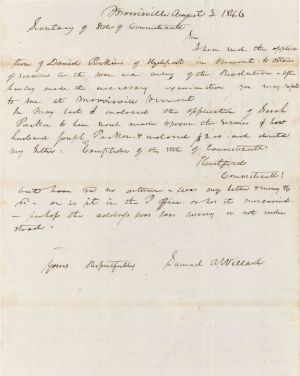 Morrisville August 3 1846
Secretary of State of Connecticut
Sir
I here send the applica
tion of Daniel Perkins of Hydepark in Vermont to obtain
of services in the war army of the Revolution - after
having made the necessary examination you may reply
to me at Morrisville Vermont
In May last I enclosed the application of Sarah
Parker to have made the service of her
husband Joseph Parker & enclosed $2.00 and directed
my letter. Comptroller of the State of Connecticut
Hartford
Connecticut
and have had no return - was my letter & money
- or is it in the P office or has it miscarried
- perhaps the address was wrong or not under
stood.
Yours Respectfully Samuel A Willard